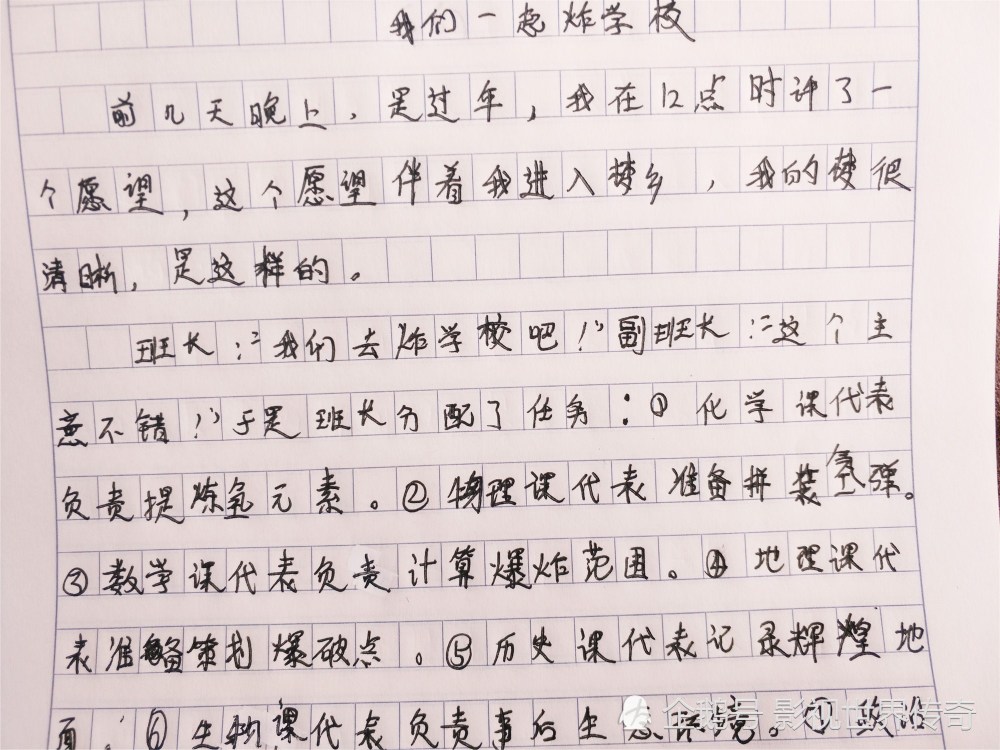 我们一起炸学校
前几天晚上，是过年，我在12点时许了一
个愿望，这个愿望伴着我进入梦乡，我的梦很
清晰，是这样的。
班长：“我们去炸学校吧！”副班长：“这个主
意不错！”于是班长分配了任务：① 化学课代表
负责提炼氢元素。②物理课代表准备拼装氢弹。
③数学课代表负责计算爆炸范围。④地理课代
表准备策划爆破点。⑤历史课代表记录辉煌地
面。⑥生物课代表负责事后生态环境。⑦政治
企鹅号 影视世界传奇